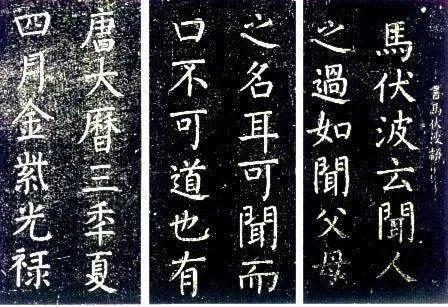 馬伏波云聞人
之過如聞父母
之名耳可聞而
口不可道也有
唐大曆三秊夏
四月金紫光禄